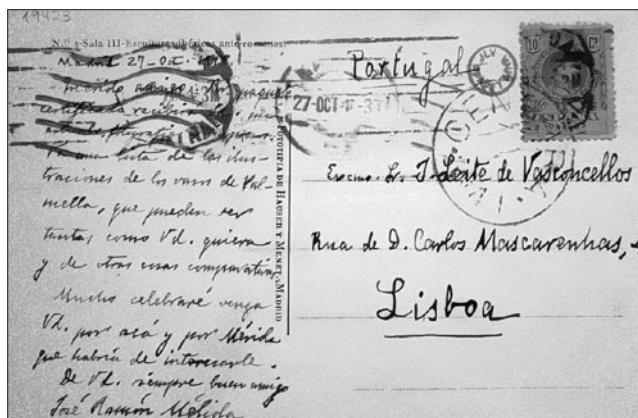 19423
N.º 3-Sala III-Esculturas ibéricas ante-romanas.
Madrid 27-Oct-
Querido amigo:
certificado recibirá
una lista de las ilus-
traciones de los vasos de Pal-
mella, que pueden ser
tantas como Vd. quiera
y de otras cosas comparativas.
Mucho celebraré venga
Vd. por acá y por Mérida
que habría de interesarle.
De Vd. siempre buen amigo
José Ramón Mélida
FOTOTIPIA DE HAUSER Y MENET.-MADRID
27-OCT
Portugal
10 C
Excmo. Sr. J. Leite de Vasconcellos
Rua de D. Carlos Mascarenhas,
Lisboa